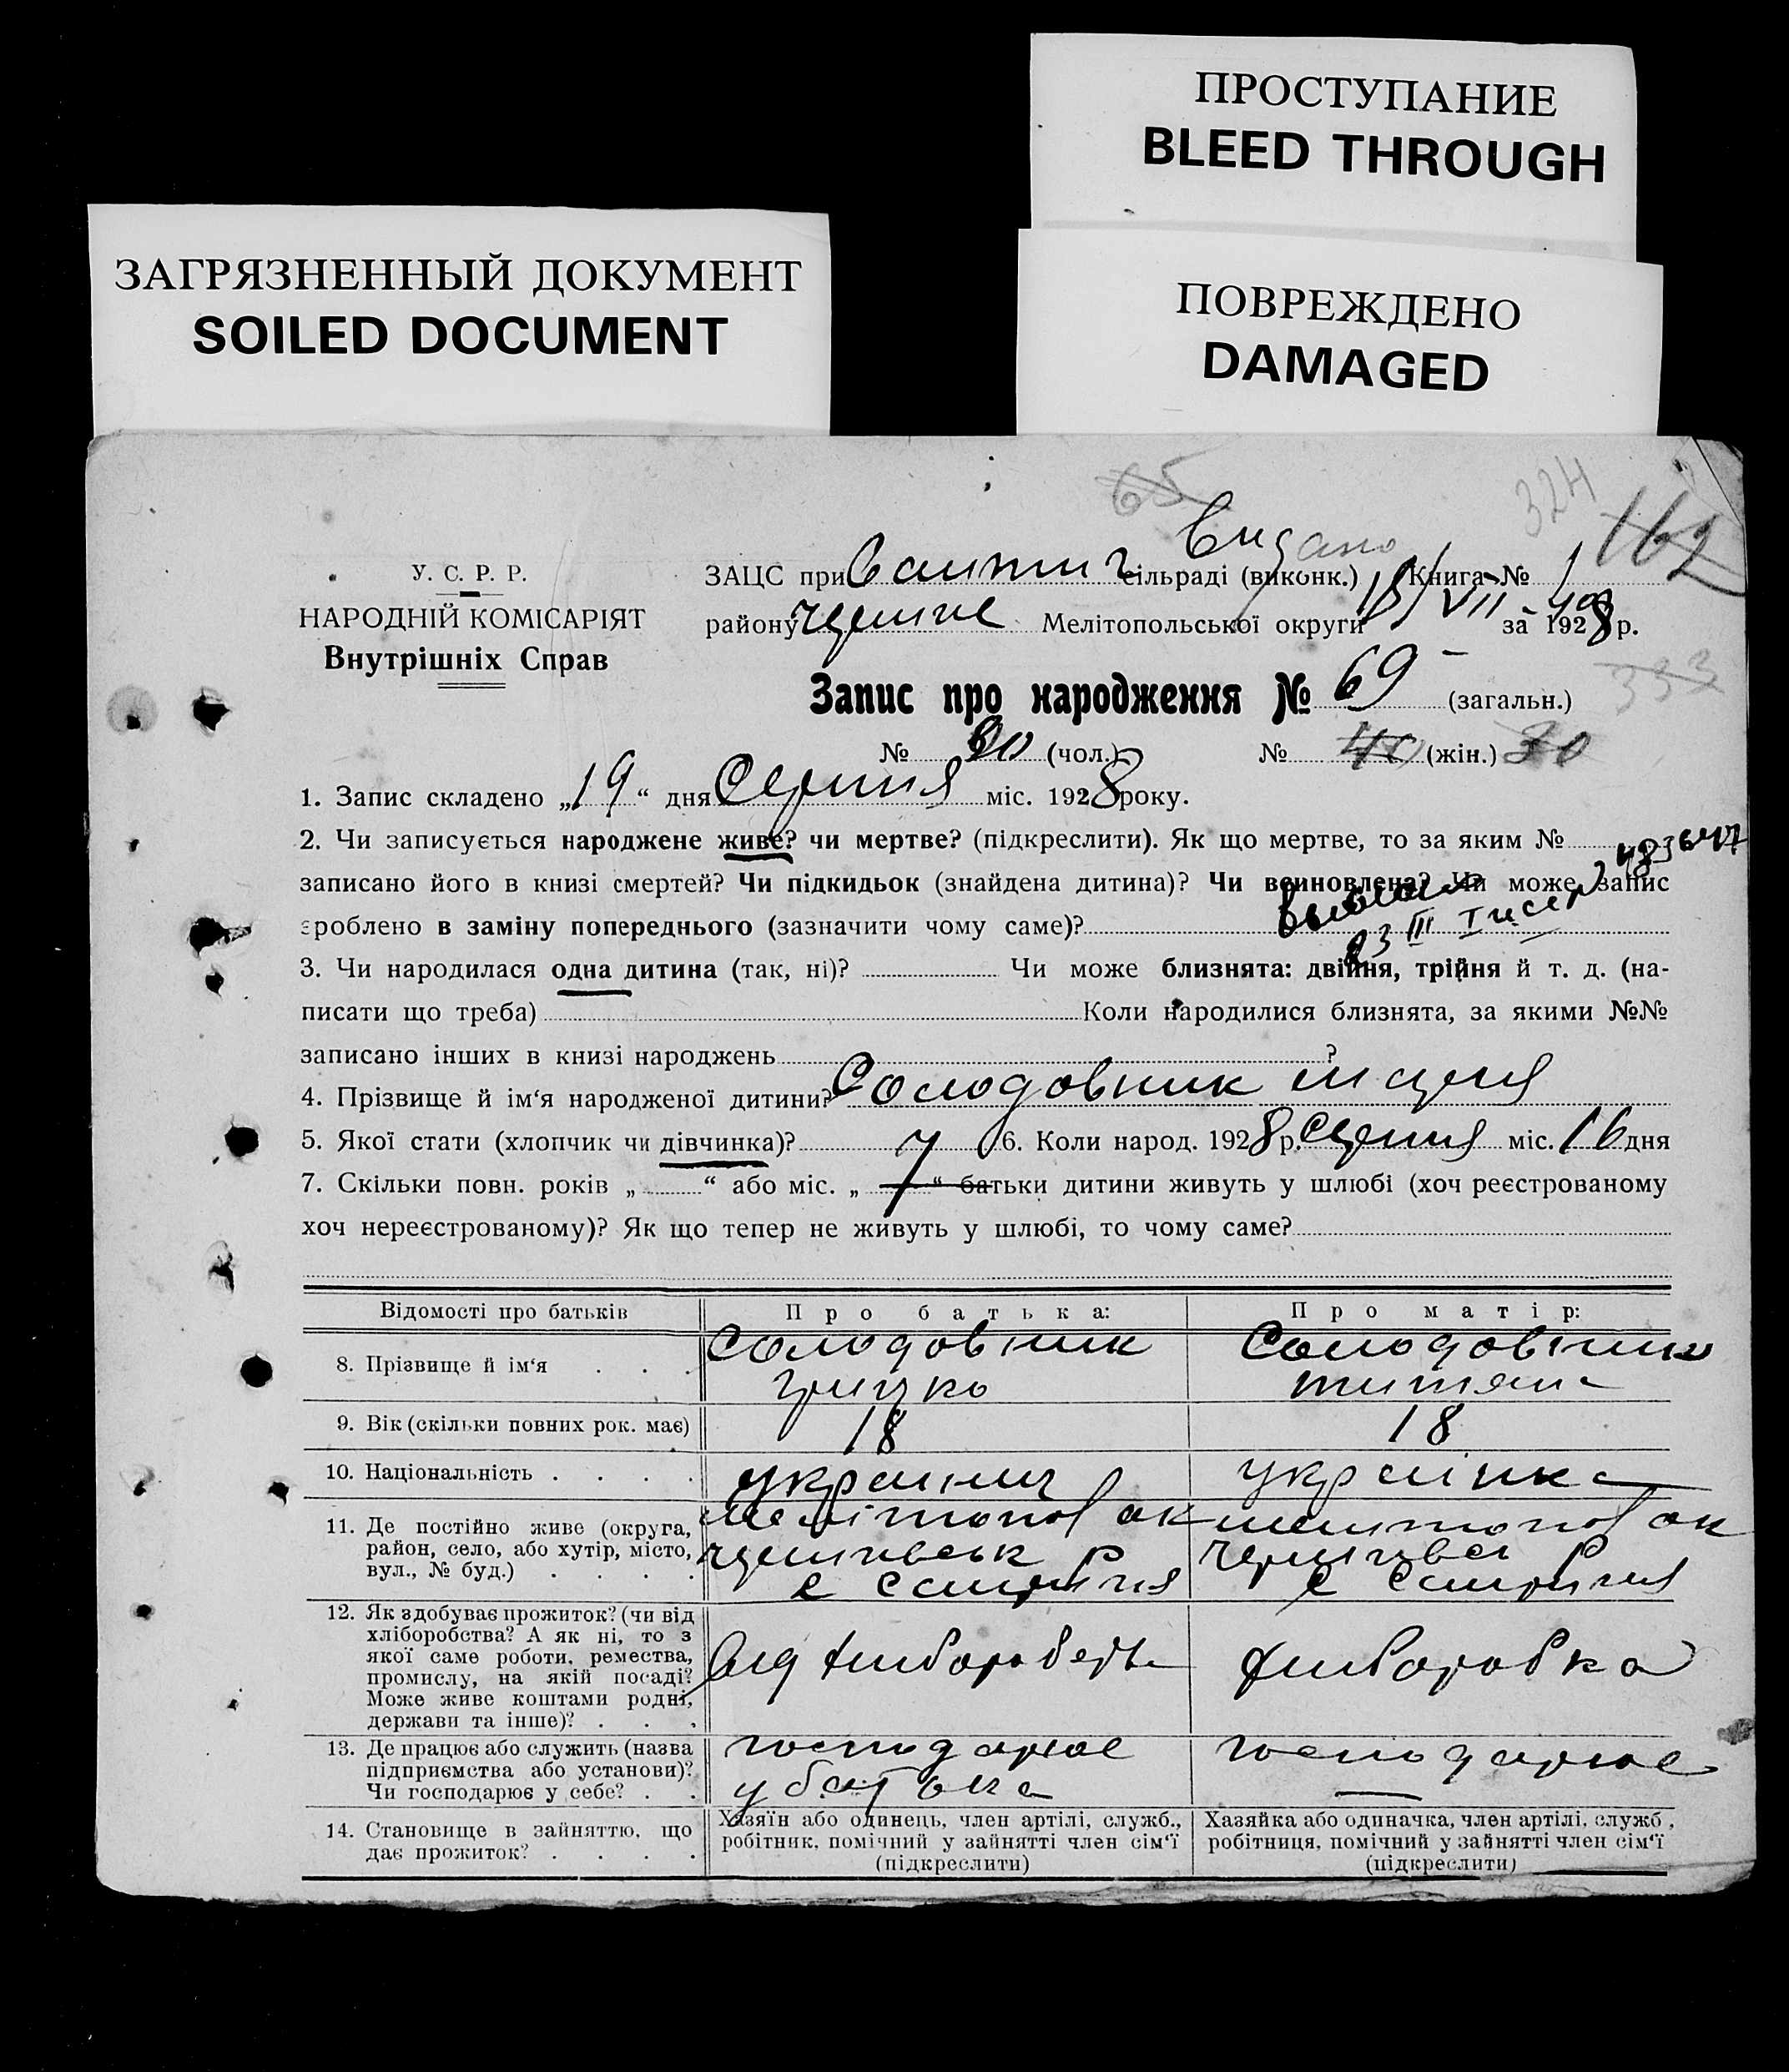 ПРОСТУПАНИЕ
BLEED THROUGH
ЗАГРЯЗНЕННЫЙ ДОКУМЕНТ
SOILED DOCUMENT
ПОВРЕЖДЕНО
DAMAGED
65
324
162
Видано
У. С. Р. Р.
ЗАЦС при сільраді (виконк.) Книга № 1
НАРОДНІЙ КОМІСАРІЯТ
району Мелітопольської округи за 1928 р.
Внутрішніх Справ
Запис про народження № 69 (загальн.)
333
№ (чол.) № 40 (жін.) 30
1. Запис складено „19“ дня Серпня міс. 1928 року.
2. Чи записується народжене живе? чи мертве? (підкреслити). Як що мертве, то за яким №
записано його в книзі смертей? Чи підкидьок (знайдена дитина)? Чи всиновлена? Чи може запис
зроблено в заміну попереднього (зазначити чому саме)?
23 III
3. Чи народилася одна дитина (так, ні)? Чи може близнята: двійня, трійня й т. д. (на-
писати що треба) Коли народилися близнята, за якими №№
записано інших в книзі народжень ?
4. Прізвище й ім‘я народженої дитини? Солодовник
5. Якої стати (хлопчик чи дівчинка)? 6. Коли народ. 1928 р. Серпня міс. 16 дня
7. Скільки повн. років „ “ або міс. „ “ батьки дитини живуть у шлюбі (хоч реєстрованому
хоч нереєстрованому)? Як що тепер не живуть у шлюбі, то чому саме?
Відомості про батьків Про батька: Про матір:
8. Прізвище й ім‘я Солодовник Солодовник
Грицко
9. Вік (скільки повних рок. має) 18 18
10. Національність украинец українка
11. Де постійно живе (округа, Мелітопол ок Мелитопол ок
район, село, або хутір, місто,
вул., № буд.)
12. Як здобуває прожиток? (чи від
хліборобства? А як ні, то з
якої саме роботи, ремества, від хлиборобства хлиборобка
промислу, на якій посаді?
Може живе коштами родні,
держави та інше)?
13. Де працює або служить (назва господарює господарює
підприємства або установи)?
Чи господарює у себе? у батька
14. Становище в зайняттю, що
дає прожиток?
Хазяїн або одинець, член артілі, служб.,
робітник, помічний у зайнятті член сім‘ї
(підкреслити)
Хазяйка або одиначка, член артілі, служб.,
робітниця, помічний у зайнятті член сім‘ї
(підкреслити)